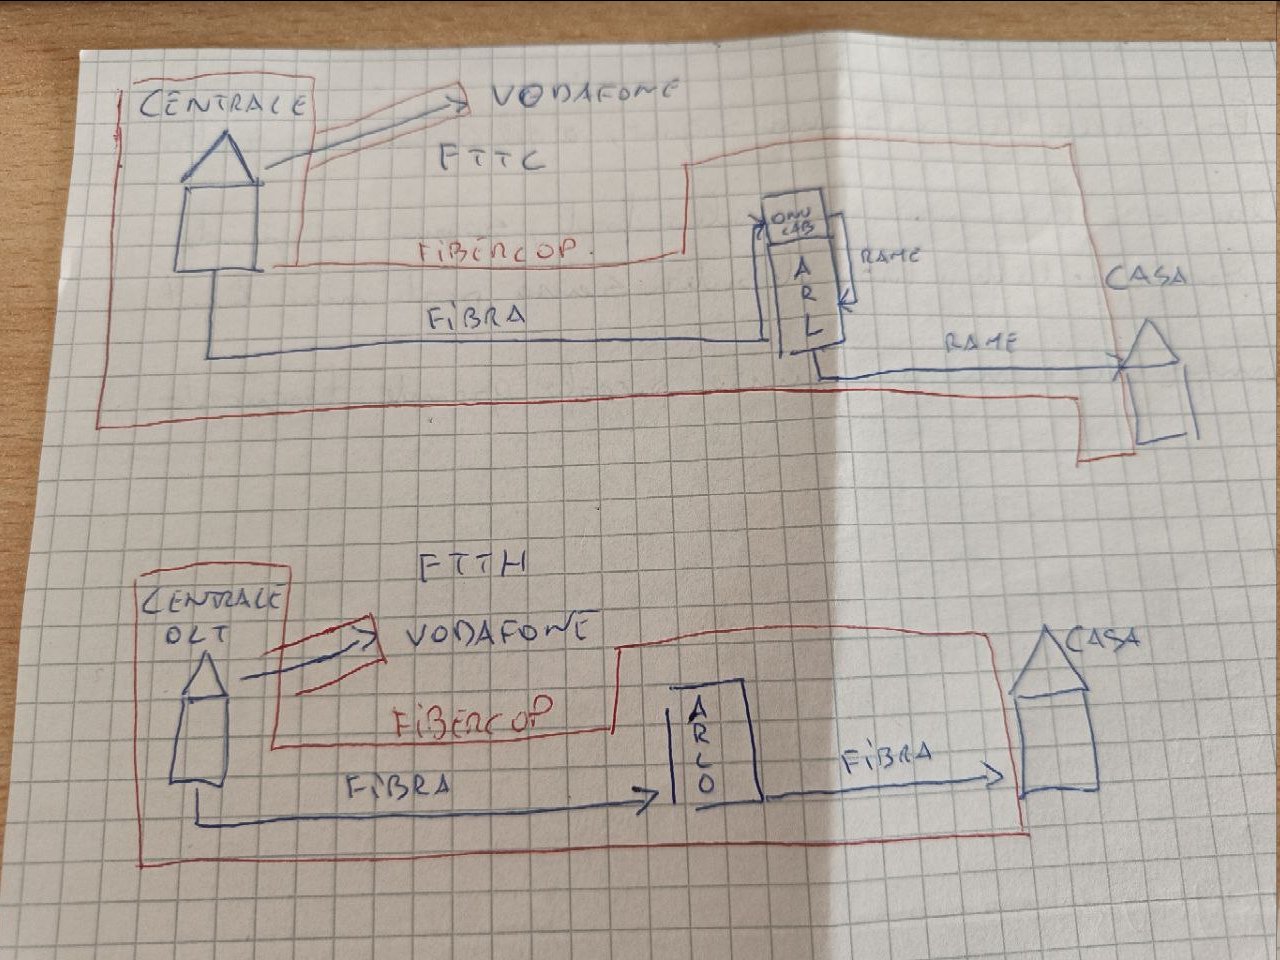 CENTRALE
VODAFONE
FTTC
FIBERCOP
FIBRA
ONU
CAB
A
R
L
RAME
RAME
CASA
FTTH
CENTRALE
OLT
VODAFONE
FIBERCOP
FIBRA
A
R
L
O
FIBRA
CASA